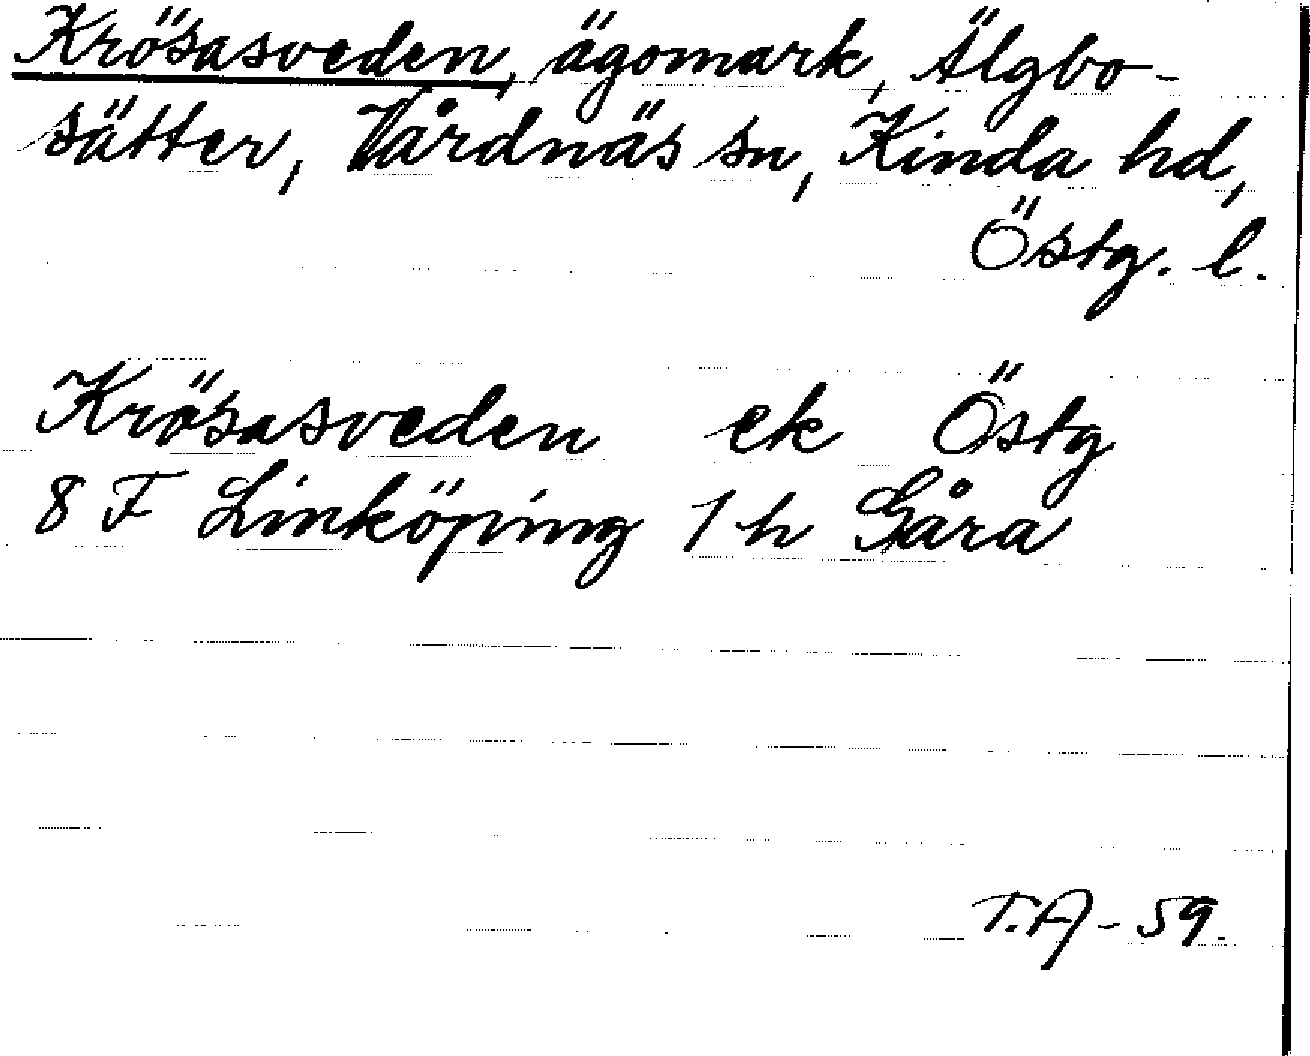 Krösasveden, ägomark, Älgbo-
sätter, Vårdnäs sn, Kinda hd,
Östg. l.
Krösasveden ek Östg
8 F Linköping 1 h Gåra
T.A - 59.